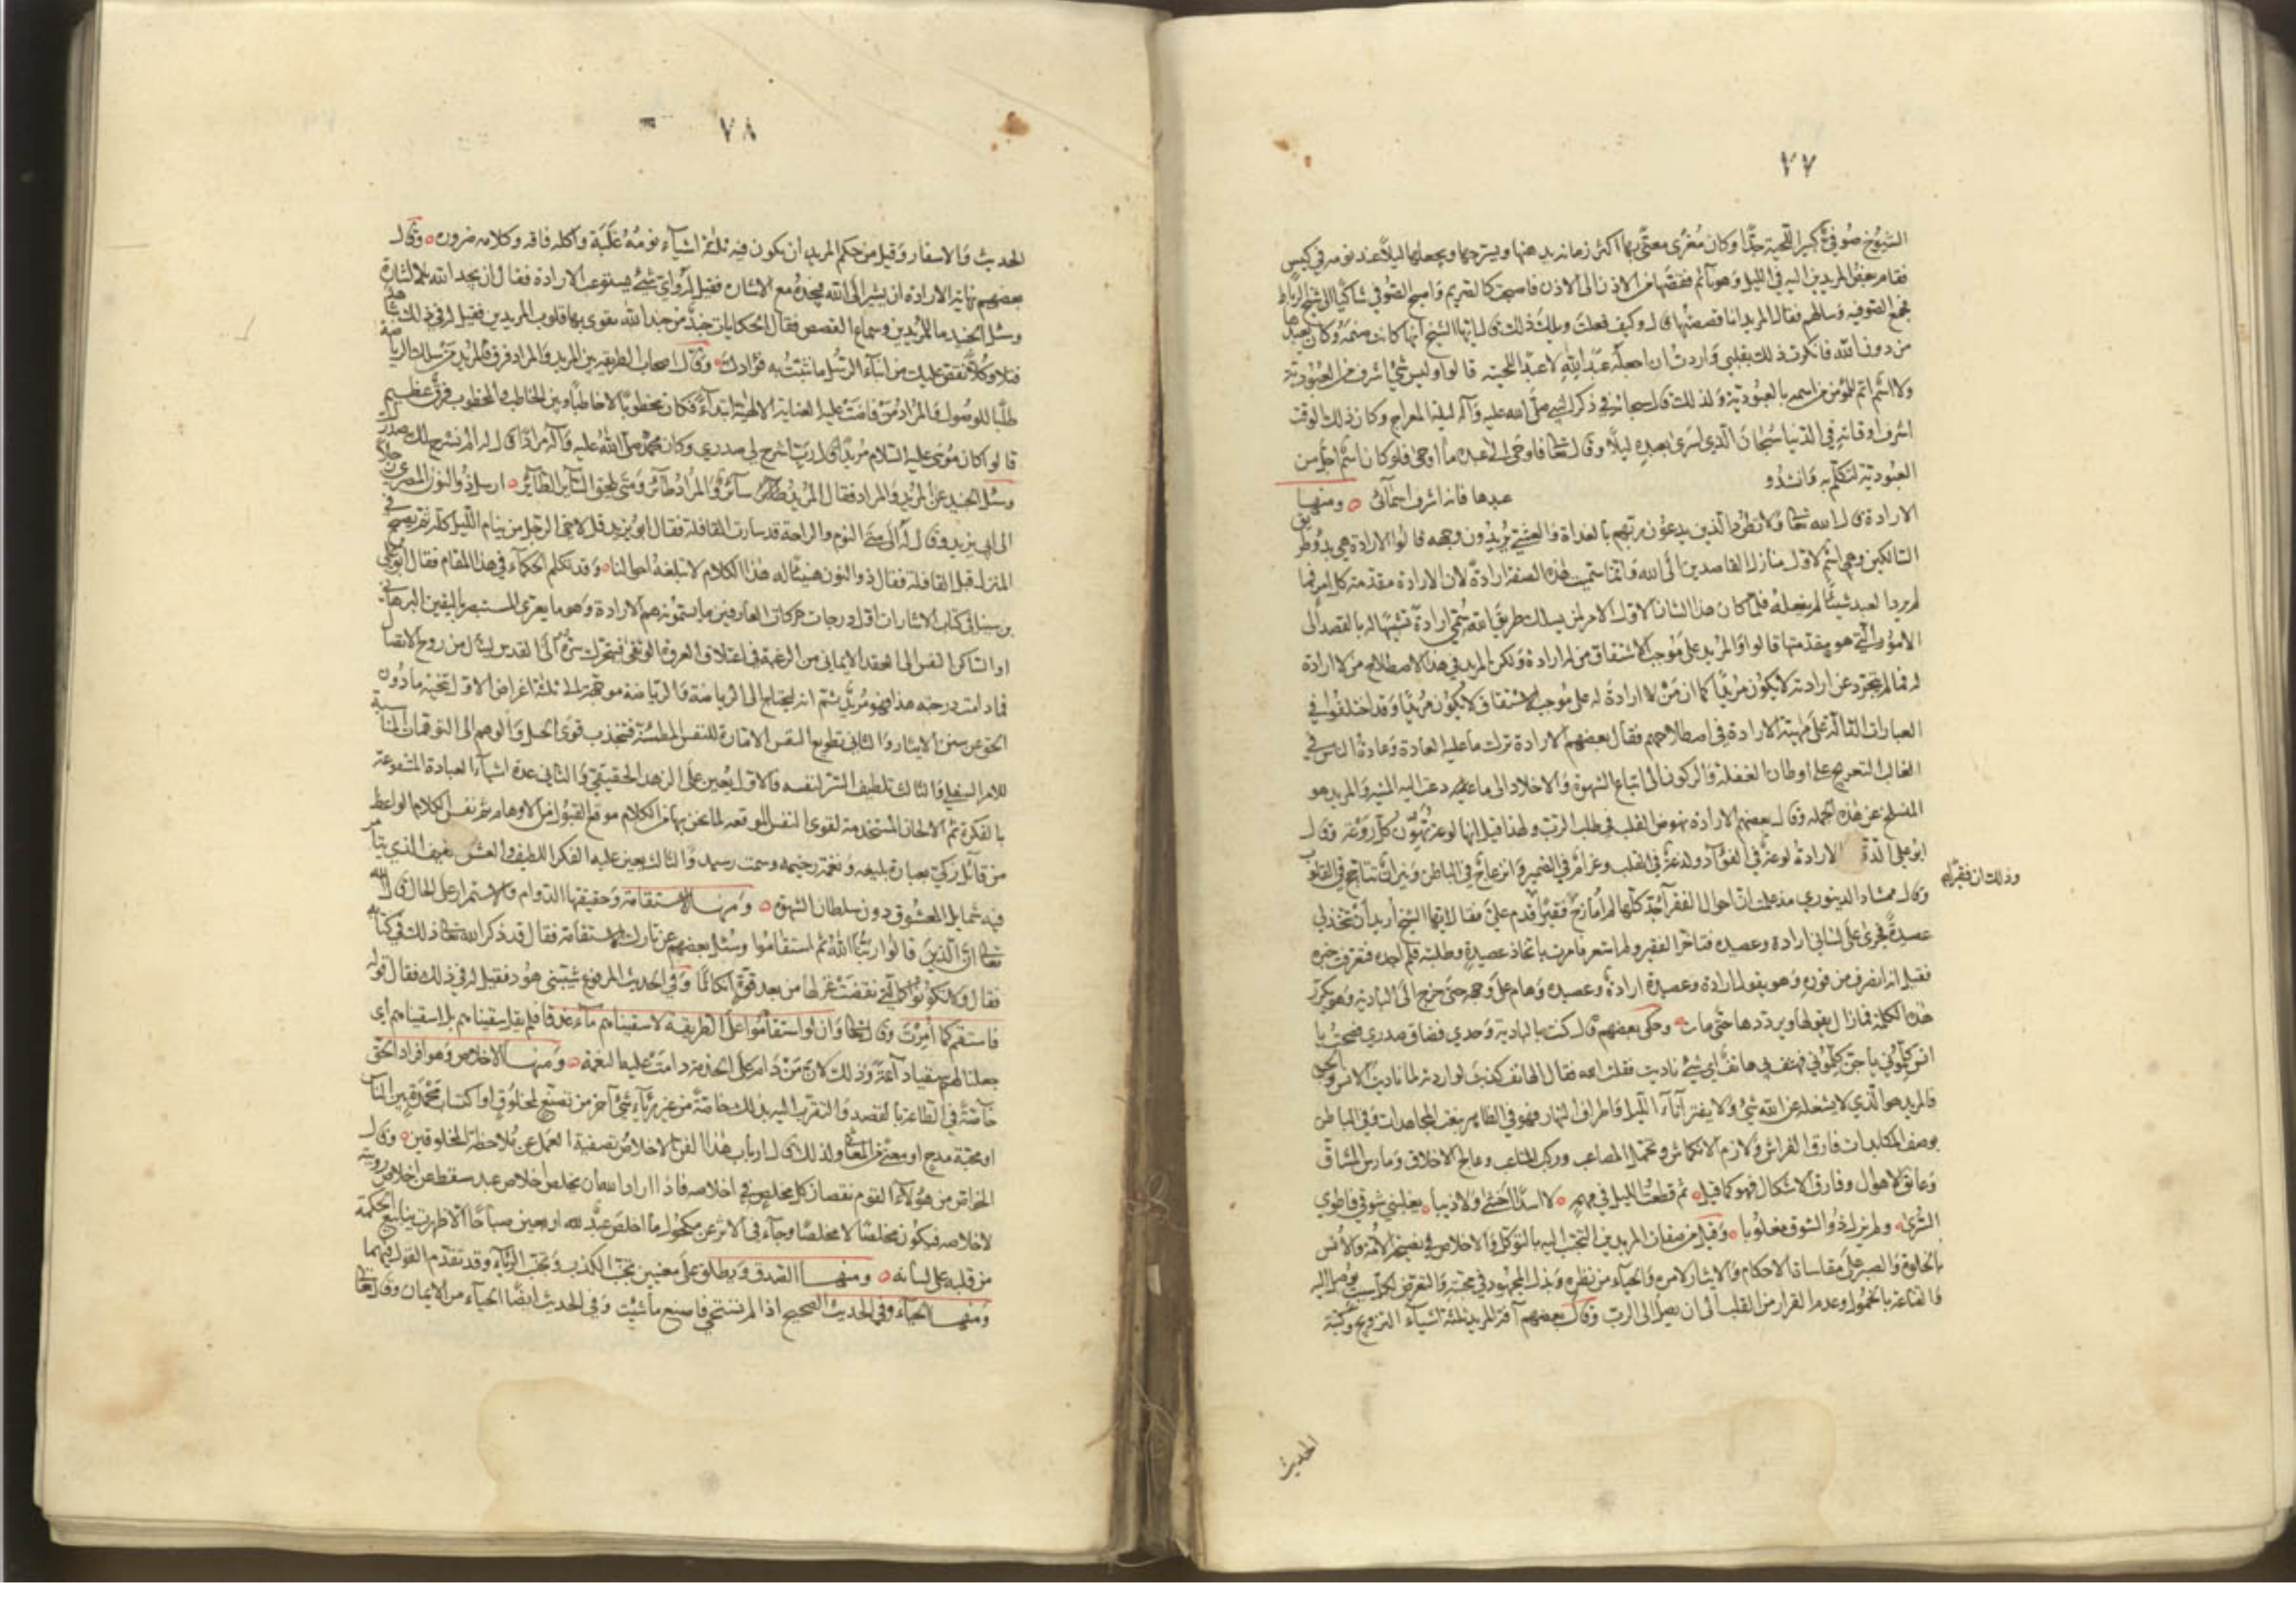 ٧٧
الشيوخ صوفي كبير اللحية جدا وكان مغرى معنى بها اكثر زمانه يدهنها ويسرحها ويجعلها ليلا عند نومه في كيس
فقام بعض المريدين اليه في الليل وهو نائم فقصها من الاذن الى الاذن فاصبحت كالصريم واصبح الصوفي شاكيا الى شيخ الرباط
فجمع الصوفيه وسالهم فقال المريد انا قصصتها قال وكيف فعلت ويلك ذلك قال ايها الشيخ انها كانت صنمه وكان يعبدها
من دون الله فانكرت ذلك بقلبي واردت ان اجعله عبدا لله لا عبدا للحيته قالوا وليس شئ اشرف من العبودية
ولا اسم اتم للمؤمن من اسمه بالعبودية ولذلك قال سبحانه في ذكر النبي صلى الله عليه وآله ليلة المعراج وكان ذلك الوقت
اشرف اوقاته في الدنيا سبحان الذي اسرى بعبده ليلا وقال تعالى فاوحى الى عبده ما اوحى فلو كان اسم اجل من
العبودية لتكلم به وانشدو عبدها فانه اشرف اسمائى ومنها
الارادة قال الله تعالى ولا تطرد الذين يدعون ربهم بالغداة والعشي يريدون وجهه قالوا الارادة هي بدو طريق
السالكين وهي اسم لاول منازل القاصدين الى الله وانما سميت هذه الصفة ارادة لان الارادة مقدمة كل امر فما
لم يرد العبد شيئا لم يفعله فلما كان هذا الشان الاول الامر لمن يسلك طريق الله سمي ارادة تشبيها له بالقصد الى
الامور التي هو مقدمتها قالوا والمريد على موجب الاشتقاق من له ارادة ولكن المريد في هذا الاصطلاح من لا ارادة
له فما لم يتجرد عن ارادته لا يكون مريدا كما ان من لا ارادة له على موجب الاشتقاق لا يكون مريدا وقد اختلفوا في
العبارات الدالة على مهية الارادة في اصطلاحهم فقال بعضهم الارادة ترك ما عليه العادة وعادة الناس في
الغالب التعريج على اوطان الغفلة والركون الى اتباع الشهوة والاخلاد الى ما دعت اليه المنية والمريد هو
المنسلخ عن هذه الجملة وقال بعضهم الارادة نهوض القلب في طلب الرب ولهذا قيل انها لوعة تهون كل روعة وقال
ابو علي الدقاق الارادة لوعة في الفؤاد ولدغة في القلب وغرام في الضمير وانزعاج في الباطن ونيران تتاجج في القلوب
وقال ممشاد الدينوري مذ علمت ان احوال الفقراء جد كلها لم امازح فقيرا
وذلك ان فقيرا
قدم علي فقال ايها الشيخ اريد ان تتخذ لي
عصيدة فجرى على لساني ارادة وعصيده فتاخر الفقير ولم اشعر فامرت باتخاذ عصيدة وطلبته فلم اجده فتعرفت خبره
فقيل انه انصرف من فوره وهو يقول ارادة وعصيدة ارادة وعصيده وهام على وجهه حتى خرج الى البادية وهو يكرر
هذه الكلمة فما زال يقولها ويرددها حتى مات وحكى بعضهم قال كنت بالبادية وحدي فضاق صدري فصحت يا
انس كلموني يا جن كلموني فهتف بي هاتف اي شئ ناديت فقلت الله فقال الهاتف كذبت لو اردته لما ناديت الانس والجن
فالمريد هو الذي لا يشغله عن الله شئ ولا يفتر آناء الليل واطراف النهار فهو في الظاهر بنعت المجاهدات وفي الباطن
بوصف المكابدات فارق الفراش ولازم الانكماش وتحمل المصاعب وركب المتاعب وعالج الاخلاق ومارس المشاق
وعانق الاهوال وفارق الاشكال فهو كما قيل ثم قطعت الليل في مهمه لا اسدا اخشى ولا ذيبا يغلبني شوقي فاطوي
السرى ولم يزل ذو الشوق مغلوبا وقيل من صفات المريدين التحبب اليه بالتوكل والاخلاص في نصيحة الامة والانس
بالخلوة والصبر على مقاساة الاحكام والايثار لامره والحياء من نظره وبذل المجهود في محبته والتعرض لكل سبب يوصل اليه
والقناعة بالخمول وعدم القرار من القلب الى ان يصل الى الرب وقال بعضهم آفة المريد ثلثة اشياء التزويج وكتبة
الحديث
٧٨
الحديث والاسفار وقيل من حكم المريد ان يكون فيه ثلثة اشياء نومه غلبة واكله فاقه وكلامه ضروره وقال
بعضهم نهاية الارادة ان يشير الى الله فيجده مع الاشارة فقيل له واي شئ يستوعب الارادة فقال ان يجد الله بلا اشارة
وسئل الجنيد ما للمريدين وسماع القصص فقال الحكايات جند من جند الله يقوى بها قلوب المريدين فقيل له في ذلك هل شاهد
فتلا وكلا نقص عليك من انباء الرسل ما نثبت به فؤادك وقال اصحاب الطريقة بين المريد والمراد فرق فالمريد من سلك الرياضة
طلبا للوصول والمراد من فاضت عليه العناية الالهية ابتداء فكان مخطوبا لا خاطبا وبين الخاطب والمخطوب فرق عظيم
قالوا كان موسى عليه السلام مريدا قال رب اشرح لي صدري وكان محمد صلى الله عليه وآله مرادا قال له الم نشرح لك صدرك
وسئل الجنيد عن المريد والمراد فقال المريد سائر والمراد طائر ومتى يلحق السائر الطائر ارسل ذو النون المصري رجلا
الى ابي يزيد وقال له الى متى النوم والراحة قد سارت القافلة فقال ابو يزيد قل لاخي الرجل من ينام الليل كله ثم يصبح في
المنزل قبل القافلة فقال ذو النون هنيئا له هذا الكلام لا تبلغه احوالنا وقد تكلم الحكماء في هذا المقام فقال ابو علي
بن سينا في كتاب الاشارات اول درجات حركات العارفين ما يسمونه هم الارادة وهو ما يعتري المستبصر باليقين البرهاني
او الساكن النفس الى العقد الايماني من الرغبة في اعتلاق العروة الوثقى فيتحرك سره الى القدس لينال من روح الاتصال
فما دامت درجته هذا فهو مريد ثم انه ليحتاج الى الرياضة والرياضة موجهة الى ثلثة اغراض الاول تنحية ما دون
الحق عن سنن الايثار والثاني تطويع النفس الامارة للنفس المطمئنة فتنجذب قوى التخيل والوهم الى التوهمات المناسبة
للامر السفلي والثالث تلطيف السر لنفسه فالاول يعين على الزهد الحقيقي والثاني عدة اشياء العبادة المشفوعة
بالفكرة ثم الالحان المستخدمة لقوى النفس الموقعه لما لحن بها من الكلام موقع القبول من الاوهام ثم نفس الكلام الواعظ
من قائل زكي بعبارة بليغه ونغمة رخيمه وسمت رسيد والثالث يعين عليه الفكر اللطيف والعشق العفيف الذي يتامر
فيه شمايل المعشوق دون سلطان الشهوة ومنها الاستقامة وحقيقتها الدوام والاستمرار على الحال قال الله
تعالى ان الذين قالوا ربنا الله ثم استقاموا وسئل بعضهم عن تارك الاستقامة فقال قد ذكر الله تعالى ذلك في كتابه
فقال ولا تكونوا كالتي نقضت غزلها من بعد قوة انكاثا وفي الحديث المرفوع شيبتني هود فقيل له في ذلك فقال قوله
فاستقم كما امرت وقال تعالى وان لو استقاموا على الطريقة لاسقيناهم ماء غدقا فلم يقل سقيناهم بل اسقيناهم اي
جعلنا لهم سقيا دائمة وذلك لان من دام على الخدمة دامت عليه النعمة ومنها الاخلاص وهو افراد الحق
خاصة في الطاعة بالقصد والتقرب اليه بذلك خاصة من غير رياء شئ آخر من تصنع لمخلوق او اكتساب محمدة بين الناس
او محبة مدح او معنى من المعاني ولذلك قال ارباب هذا الفن الاخلاص تصفية العمل عن ملاحظة المخلوقين وقال
الخواص من هؤلاء القوم نقصان كل مخلص في اخلاصه فاذا اراد الله ان يخلص اخلاص عبد سقط عن اخلاصه رويته
لاخلاصه فيكون مخلصا لا مخلصا وجاء في الاثر عن مكحول ما اخلص عبد لله اربعين صباحا الا ظهرت ينابيع الحكمة
من قلبه على لسانه ومنها الصدق ويطلق على معنيين تجنب الكذب وتجنب الرياء وقد تقدم القول فيهما
ومنها الحياء وفي الحديث الصحيح اذا لم تستحي فاصنع ما شئت وفي الحديث ايضا الحياء من الايمان وقال تعالى